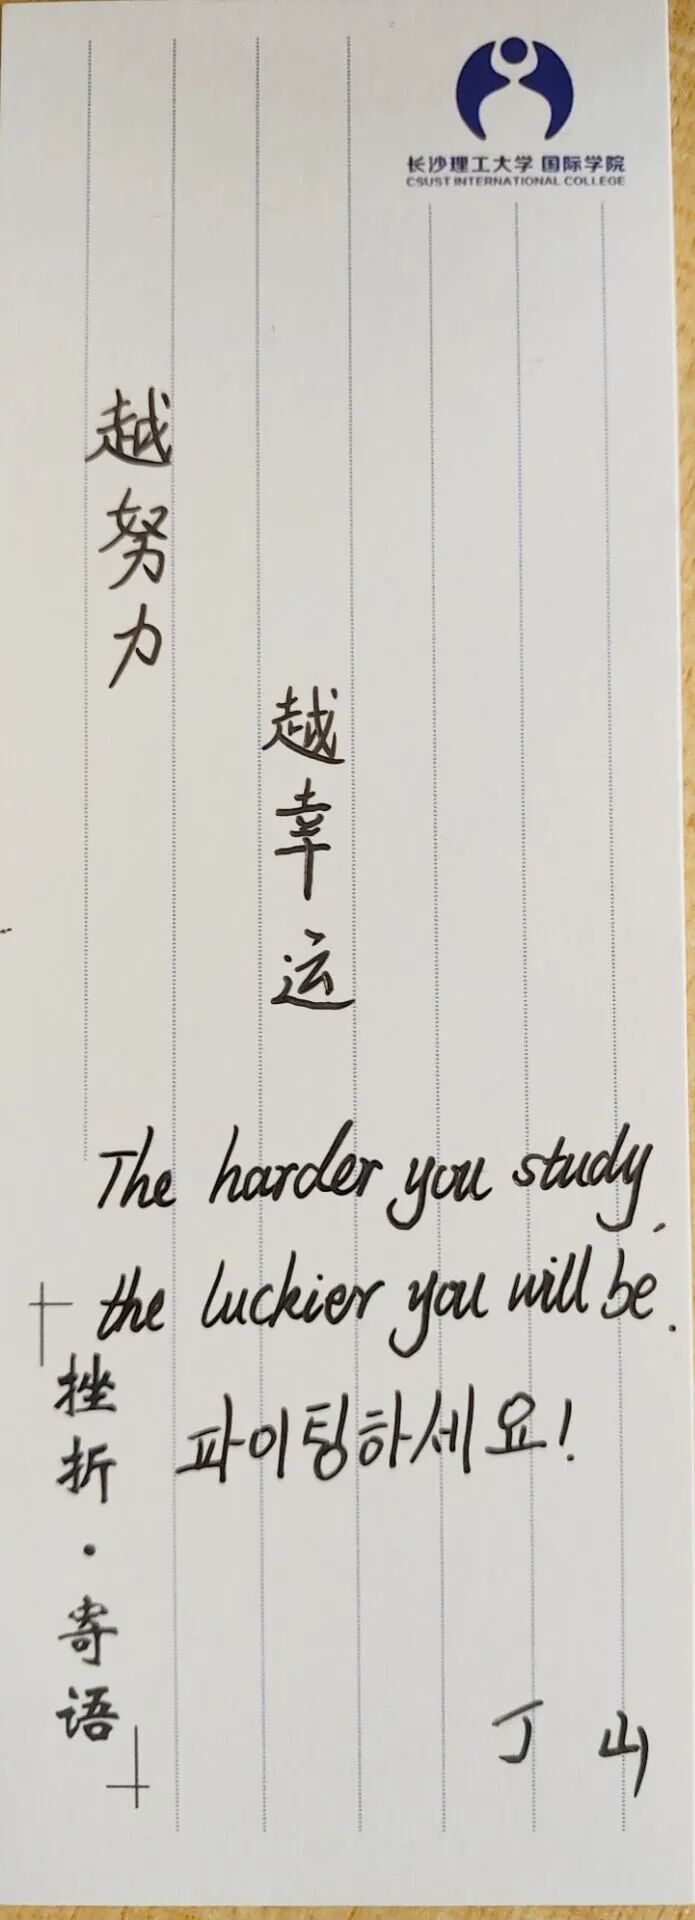 长沙理工大学 国际学院
CSUST INTERNATIONAL COLLEGE
越努力
越幸运
The harder you study,
the luckier you will be.
파이팅하세요!
挫折·寄语
丁山